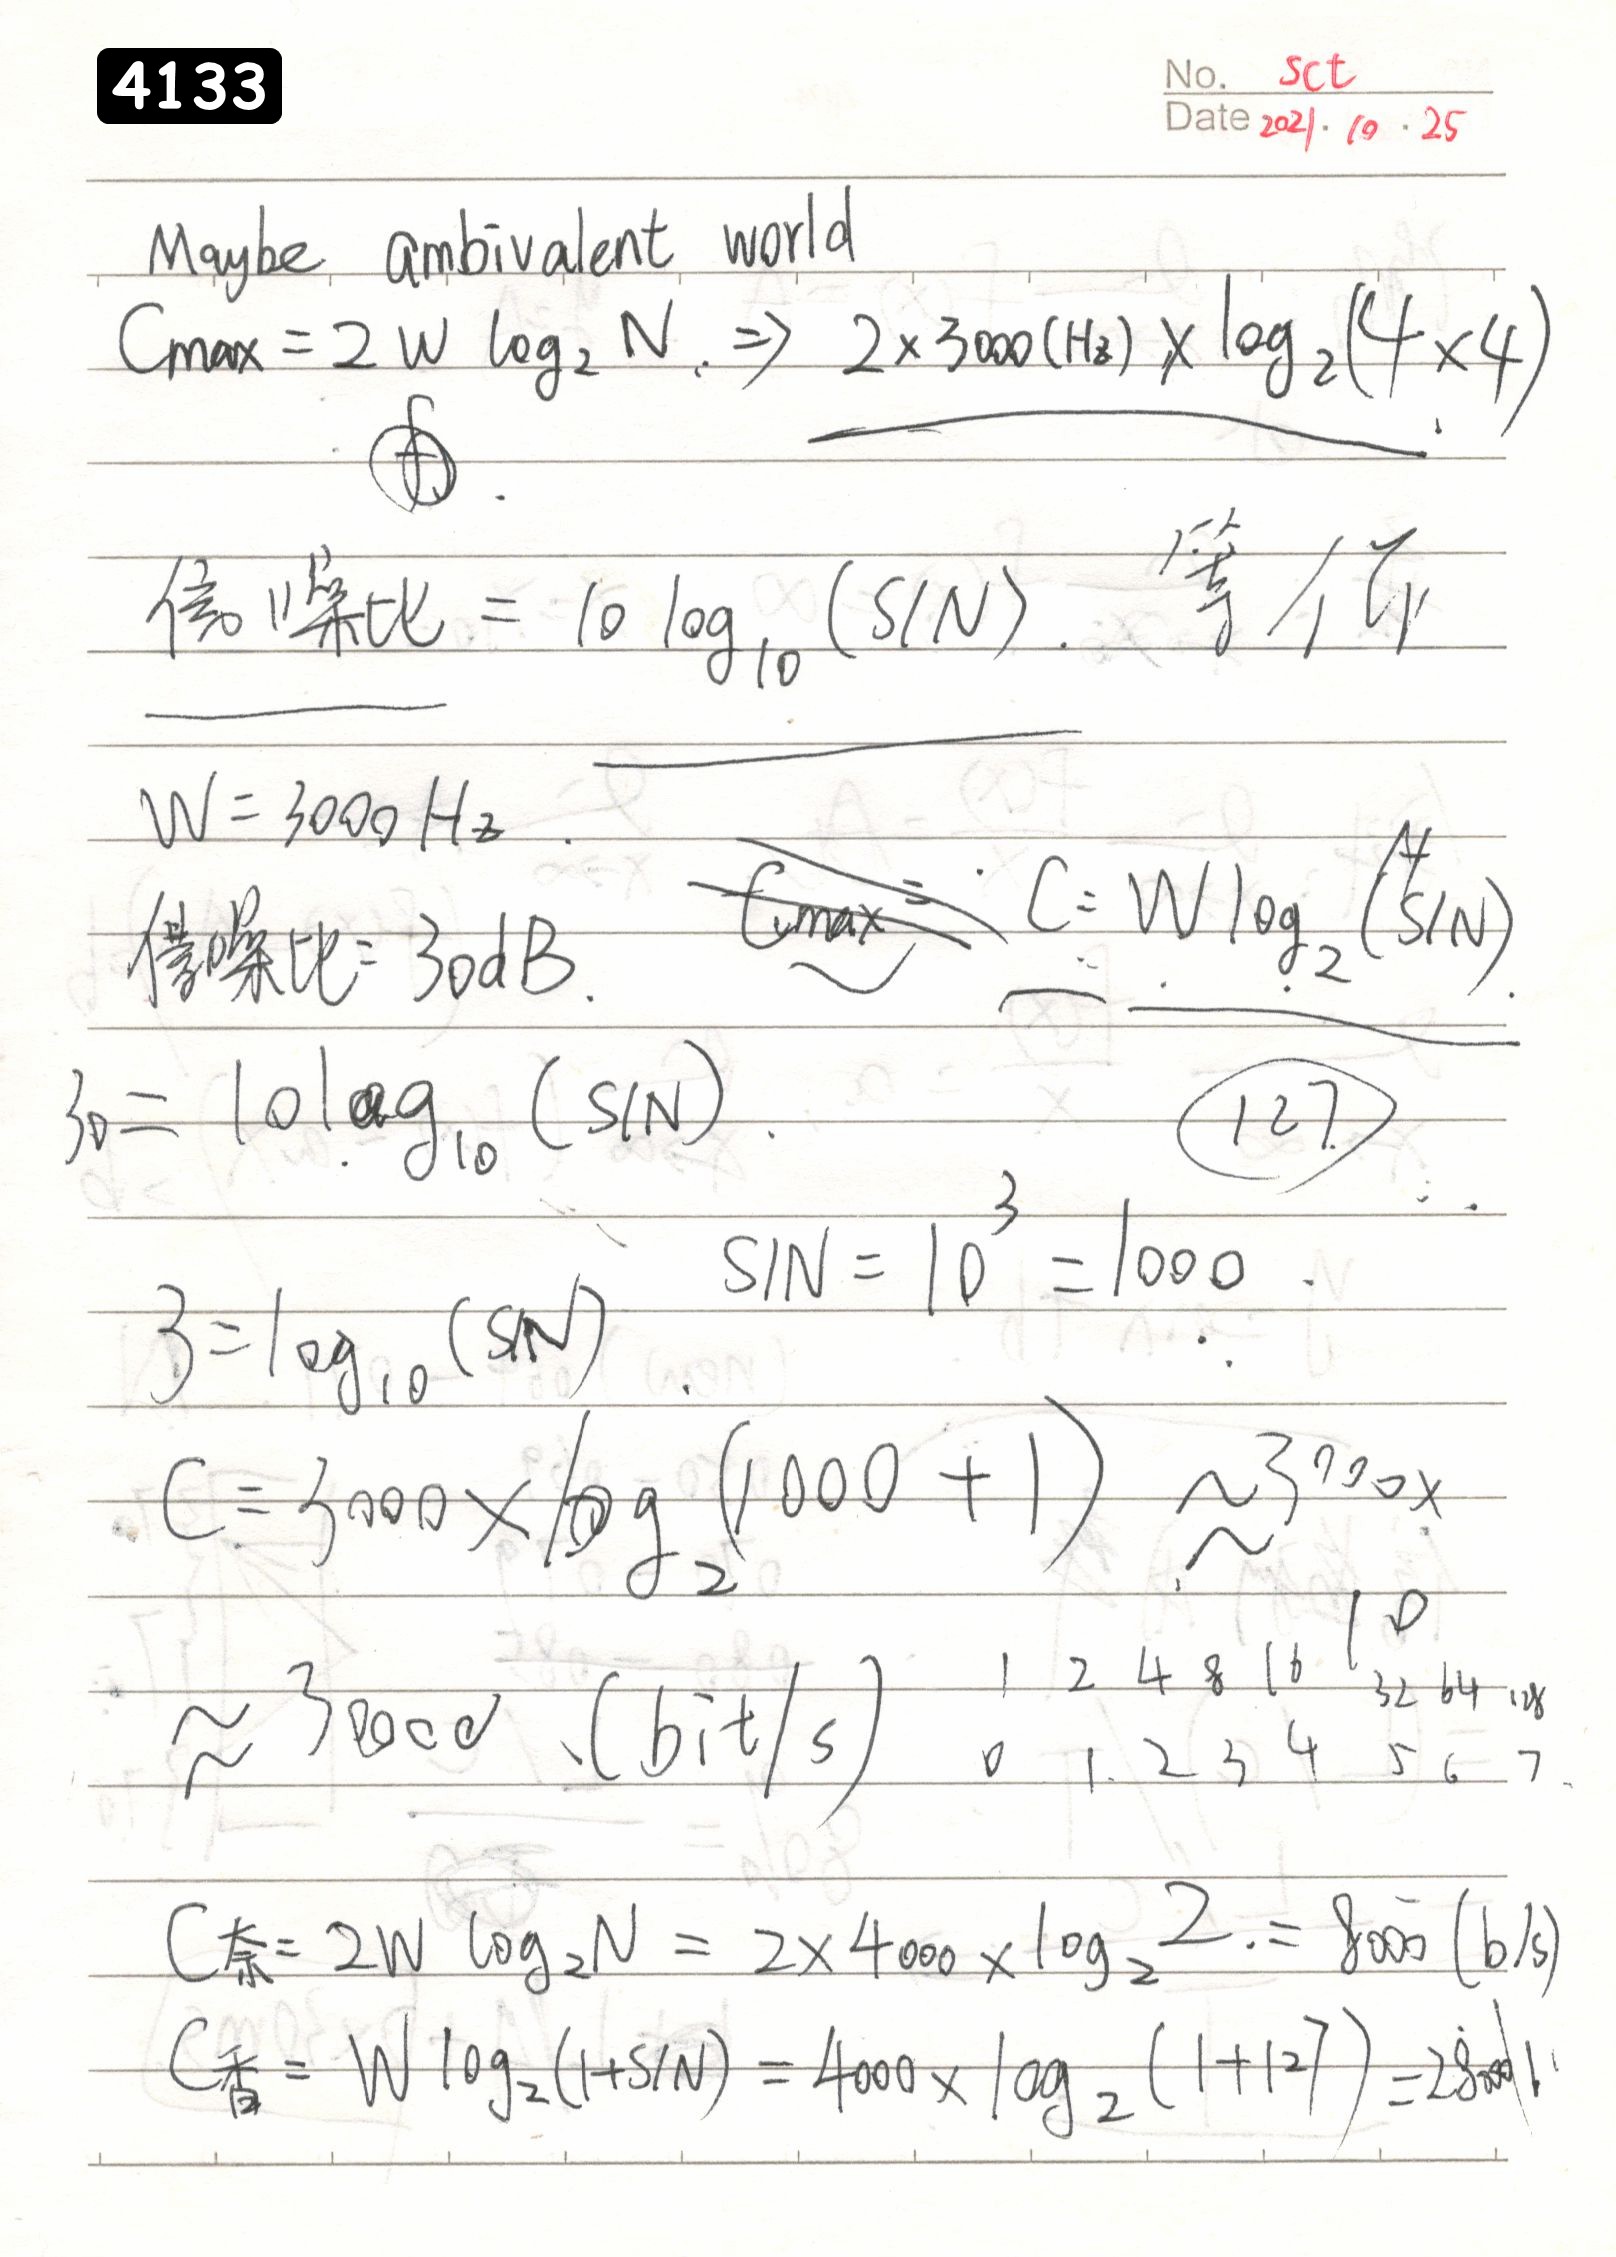 4133
No. sct
Date 2021.10.25
Maybe ambivalent world
Cmax = 2 W log₂ N. ⇒ 2×3000(Hz) × log₂(4×4)
信噪比 = 10 log₁₀ (S/N). 等价
W = 3000 Hz.
Cmax =
C = W log₂ (S/N).
信噪比 = 30dB.
30 = 10 log₁₀ (S/N).
127
S/N = 10³ = 1000.
3 = log₁₀ (S/N).
C = 3000 × log₂ (1000 + 1) ≈ 3000 ×
10
≈ 30000 (bit/s)
1 2 4 8 16 32 64 128
0 1 2 3 4 5 6 7
C奈 = 2W log₂N = 2×4000×log₂2 = 8000 (b/s)
C香 = W log₂(1+S/N) = 4000×log₂(1+127) = 28000